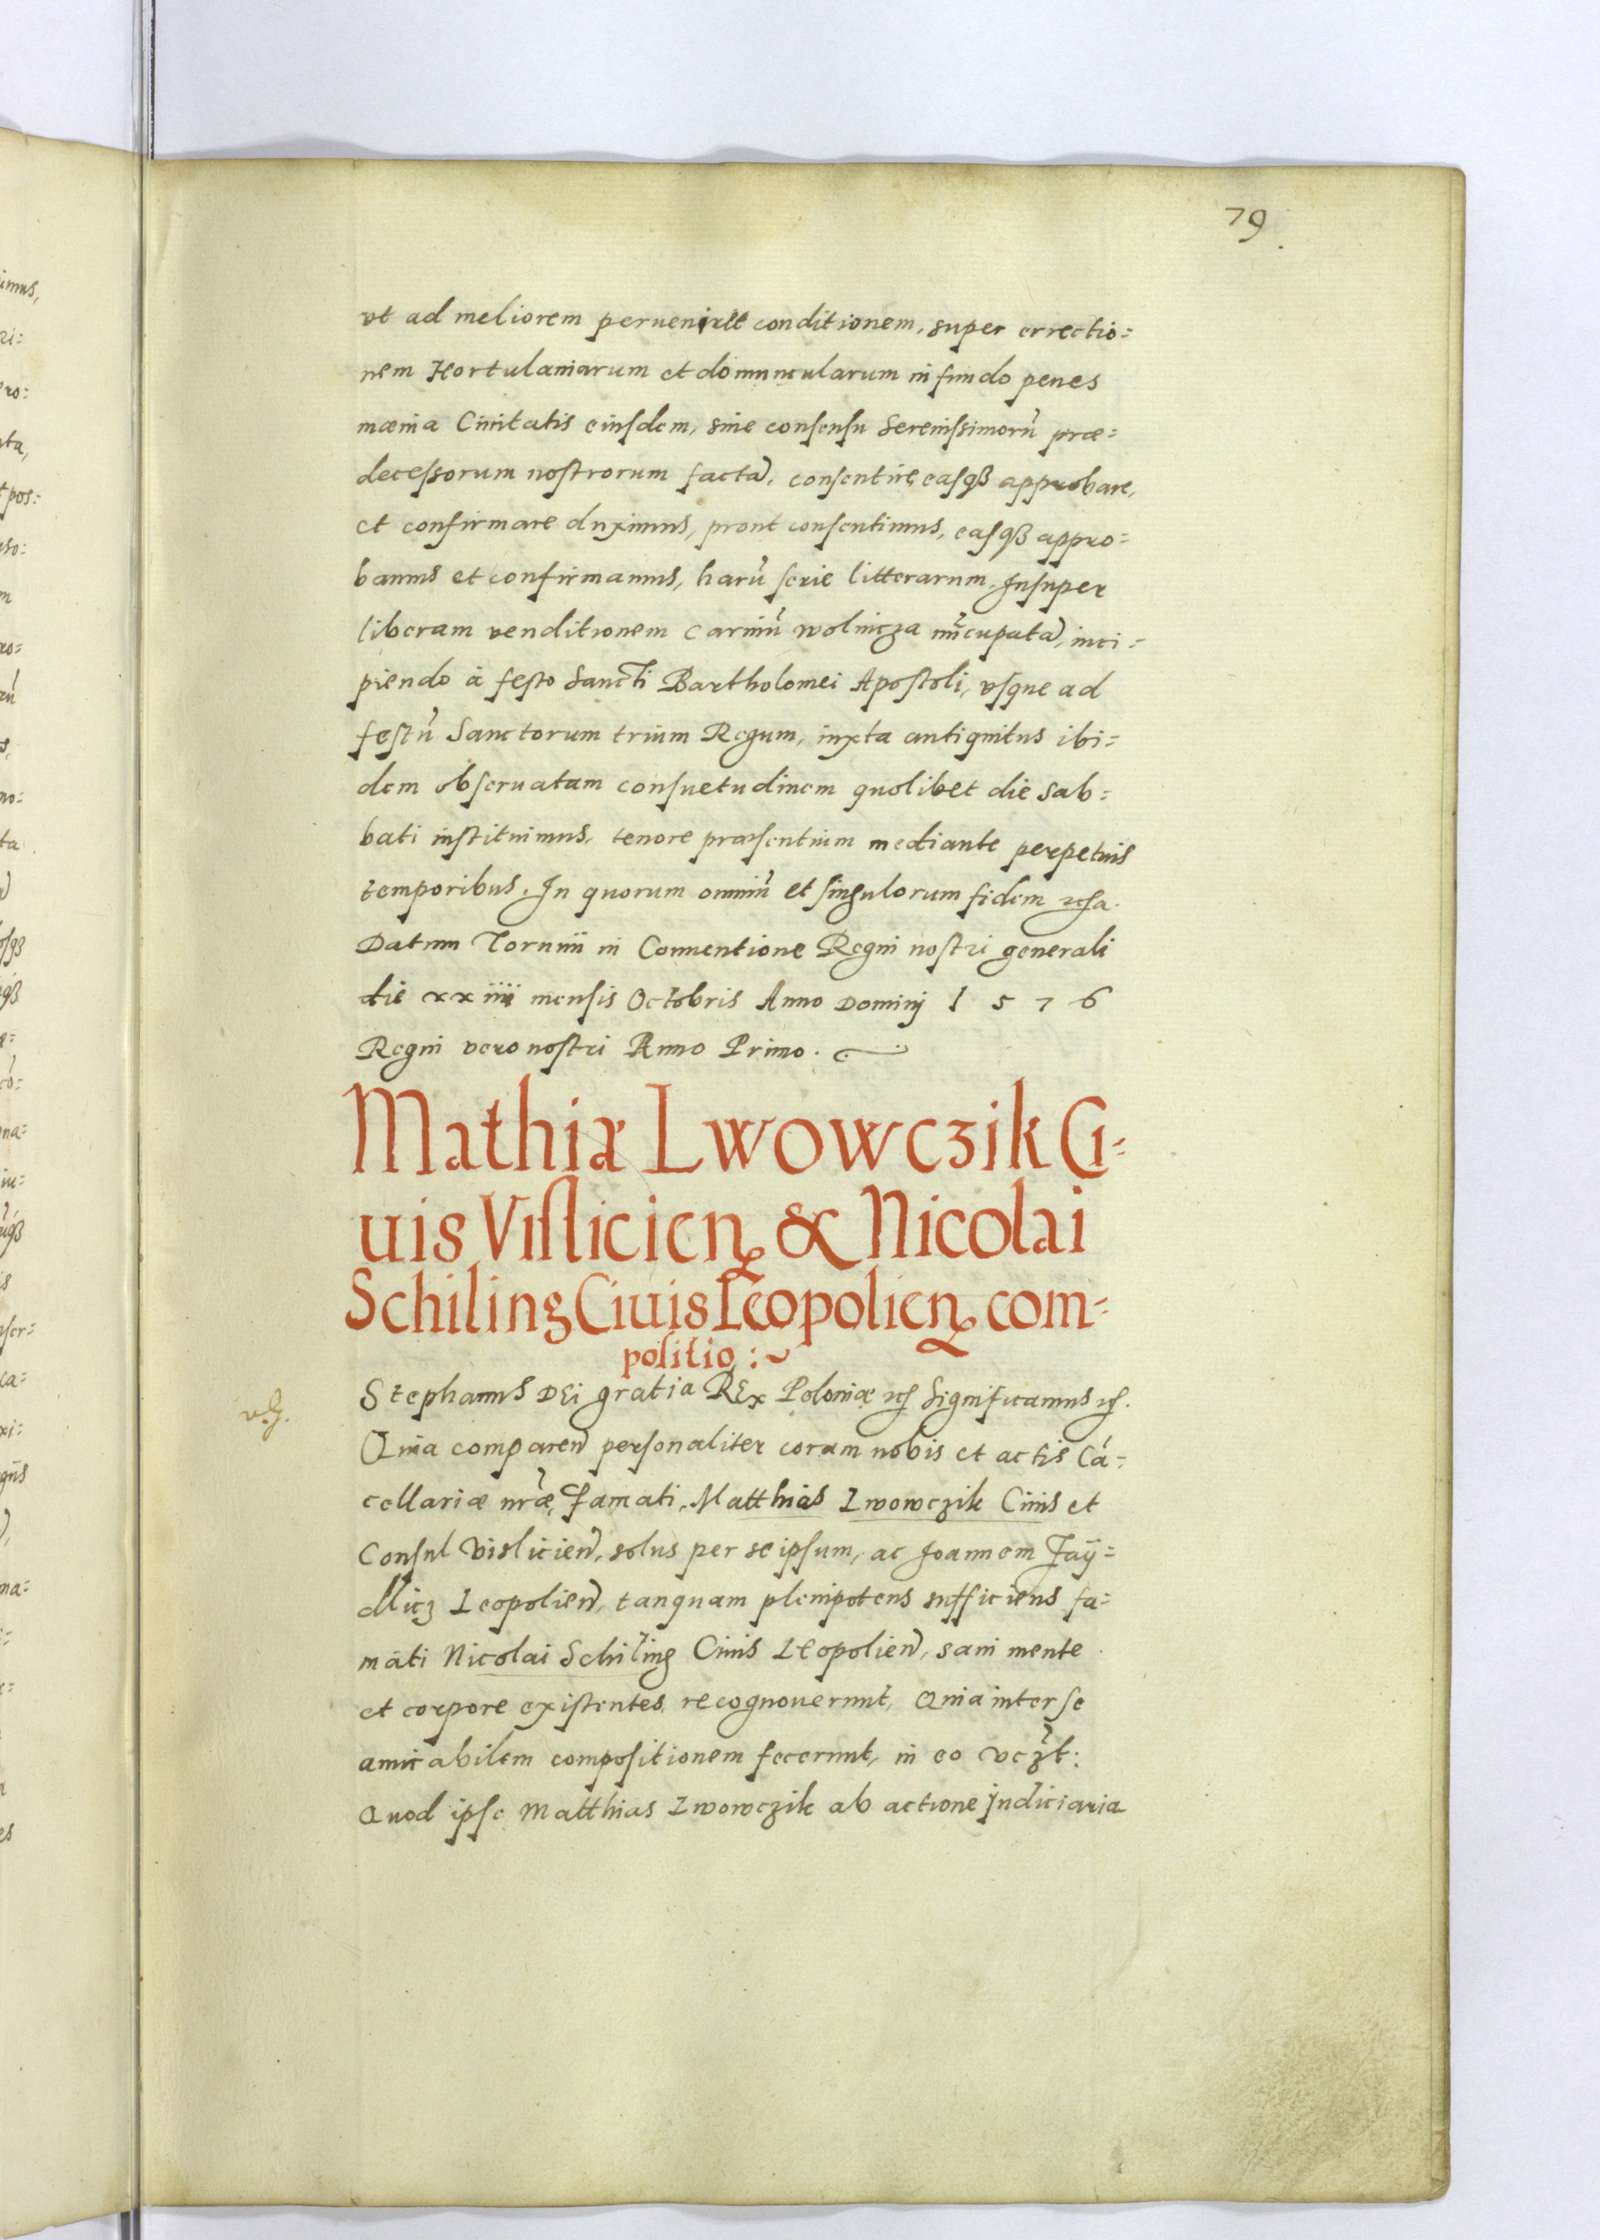 79
vt ad meliorem perueniret conditionem, super errectio=
nem Hortulaniarum et domuncularum in fundo penes
mœnia Ciuitatis eiusdem, sine consensu Serenissimorũ præ=
decessorum nostrorum factã, consentire, easqꝫ approbare,
et confirmare duximus, prout consentimus, easqꝫ appro=
bamus et confirmamus, harũ serie litterarum. Insuper
liberam venditionem carniũ wolnicza nũcupatã, inci=
piendo à festo Sancti Bartholomei Apostoli, vsque ad
festũ Sanctorum trium Regum, iuxta antiquitus ibi=
dem obseruatam consuetudinem quolibet die sab=
bati instituimus, tenore præsentium mediante perpetuis
temporibus. In quorum omniũ et singulorum fidem
Datum Toruniii in Conuentione Regni nostri generali
die xxiiii mensis Octobris Anno Domini 1 5 7 6
Regni vero nostri Anno Primo.
Mathiæ Lwowczik Ci=
uis Visliciеn̄ & Nicolai
Schiling Ciuis Leopolien̄ com=
positio :~
Stephanus DEi gratia REx Poloniæ ꝛc̃ Significamus ꝛc̃.
Quia comparen̄ personaliter coram nobis et actis Cã=
cellariæ nr̃æ, famati, Matthias Lwowczik Ciuis et
Consul Vislicien̄, solus per se ipsum, ac Joannem Jaÿ=
Micz Leopolien̄, tanquam plenipotens sufficiens fa=
mati Nicolai Schiling Ciuis Leopolien̄, sani mente
et corpore existentes, recognouerunt, Quia inter se
amicabilem compositionem fecerunt, in eo vcz̃t:
Quod ipse Matthias Lwowczik ab actione judiciaria